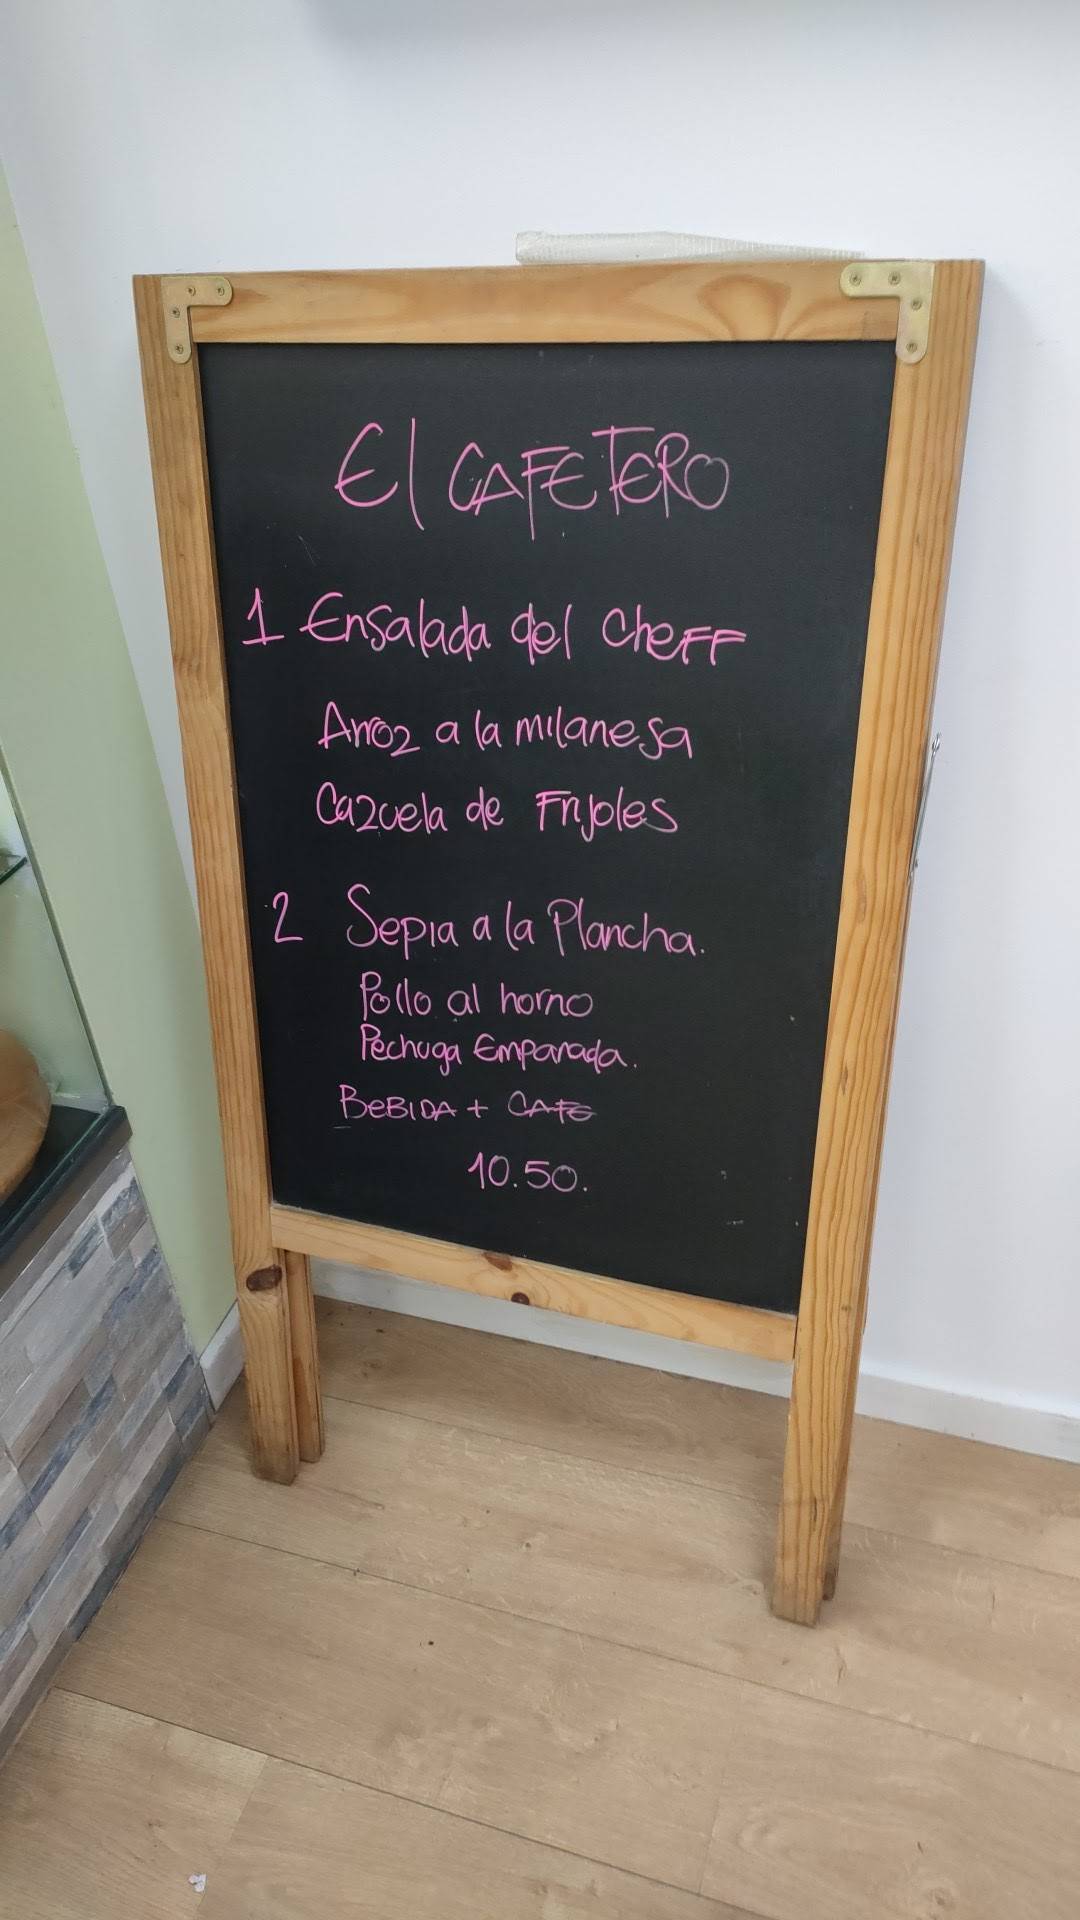 El CAFETERO
1 Ensalada del cheFF
Arroz a la milanesa
Cazuela de Frijoles
2 Sepia a la Plancha.
Pollo al horno
Pechuga Empanada.
BEBIDA + CAFE
10.50.